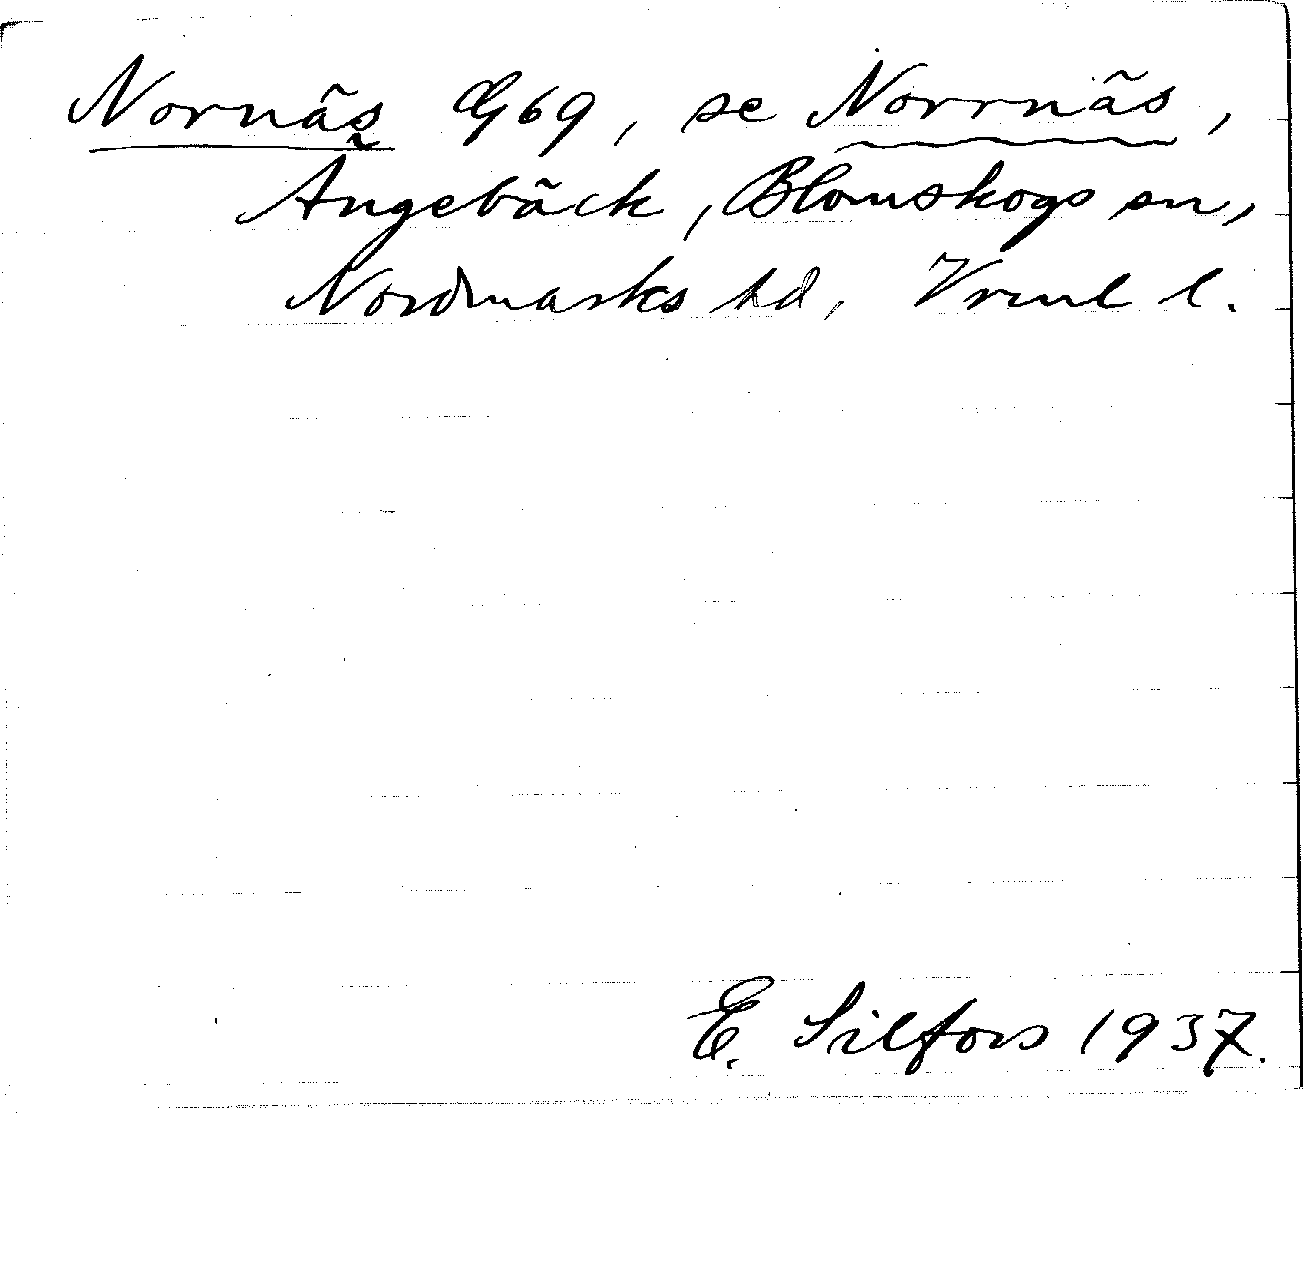 Nornäs G69, se Norrnäs,
Ängebäck, Blomskogs sn,
Nordmarks hd, Vrml l.
E. Silfors 1937.